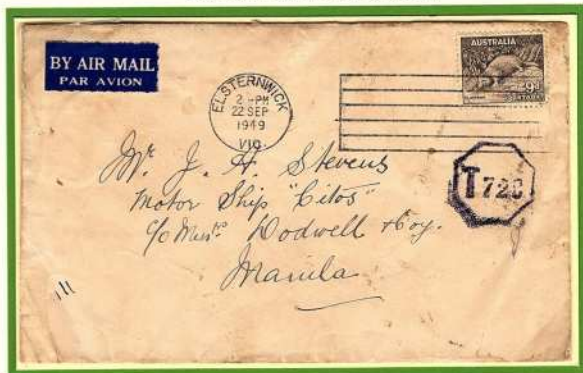 BY AIR MAIL
PAR AVION
ELSTERNWICK
2 - PM
22 SEP
1949
VIC.
AUSTRALIA
9D
T 72C
Mr. J. A. Stevens
Motor Ship "Citos"
c/o Messrs Dodwell & Coy.
Manila